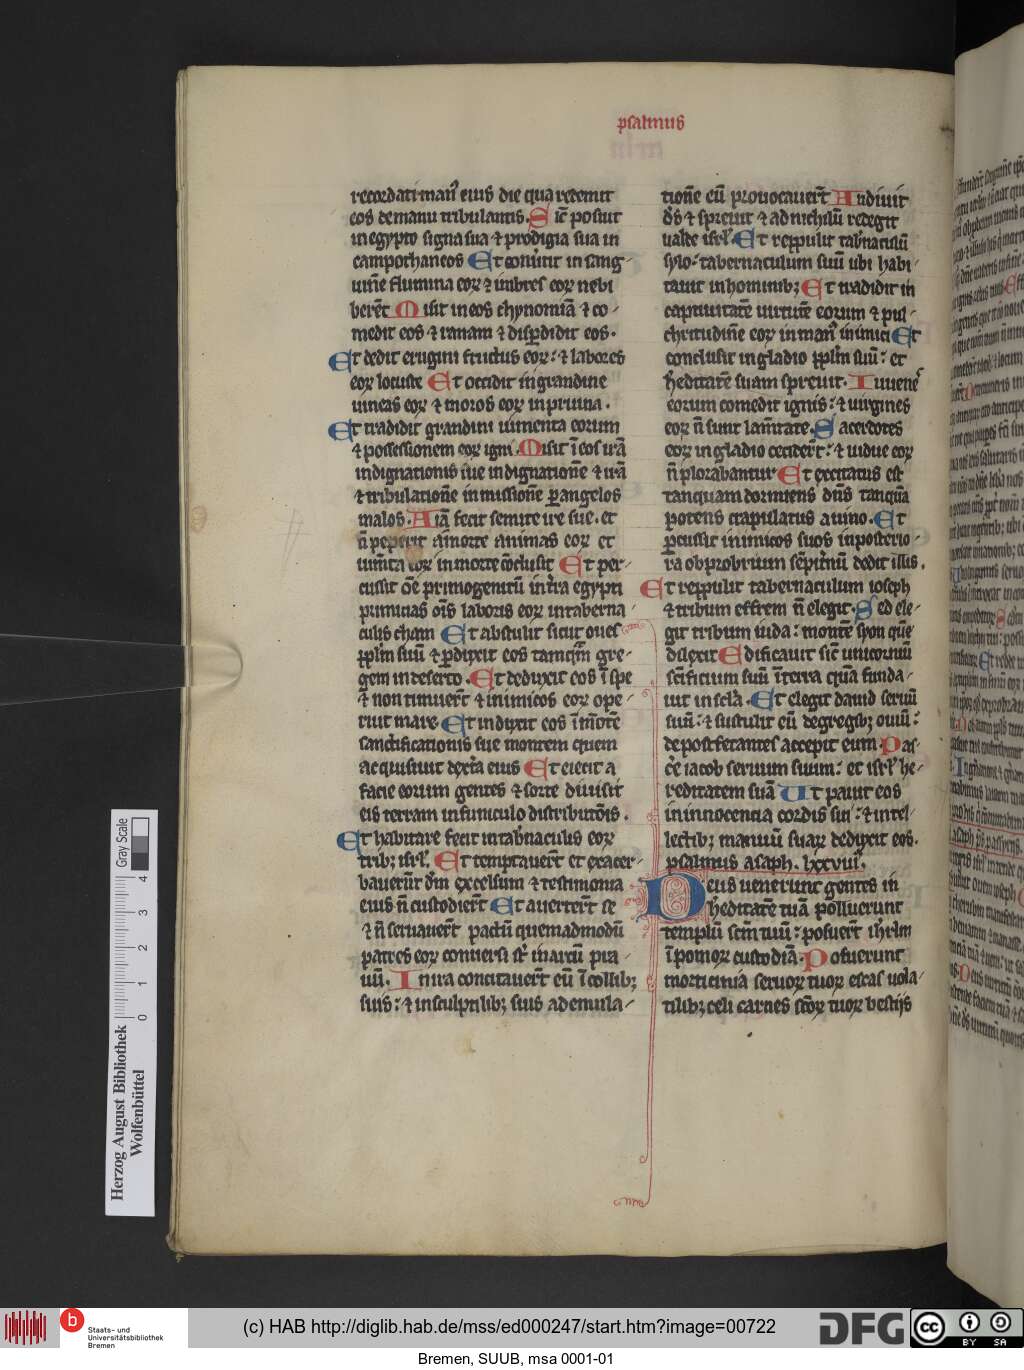 psalmus
recordati man᷒ eius die qua redemit
eos de manu tribulantis. Sic̄ posuit
in egypto signa sua ⁊ prodigia sua in
campo thaneos Et conūtit in sang-
uinē flumina eoꝝ ⁊ imbres eoꝝ ne bi
berēt Misit in eos chynomiā ⁊ co-
medit eos ⁊ ranam ⁊ dispdidit eos.
Et dedit erugini fructus eoꝝ: ⁊ labores
eoꝝ locuste Et occidit in grandine
vineas eoꝝ ⁊ moros eoꝝ in pruina.
Et tradidit grandini iumenta eorum
⁊ possessionem eoꝝ igni. Misit ī eos irā
indignationis sue indignationē ⁊ irā
⁊ tribulationē inmissionē ꝑ angelos
malos. Uiā fecit semite ire sue. et
n̄ pepercit a morte animas eoꝝ et
iumta eoꝝ in morte cōclusit Et per-
cussit oē primogenitū in tra egypti
primitias oīs laboris eoꝝ in taberna-
culis cham Et abstulit sicut oues
pplm suū ⁊ ꝑduxit eos tamqm̄ gre-
gem in deserto. Et deduxit eos ī spe
⁊ non timuerūt ⁊ inimicos eoꝝ ope-
ruit mare. Et induxit eos ī mōte
sanctificationis sue montem quem
acquisiuit dext̄a eius Et eiecit a
facie eorum gentes ⁊ sorte diuisit
eis terram in funiculo distributōis.
Et habitare fecit in tabnaculis eoꝝ
tribꝫ isrl. Et temptauerūt et exacer-
bauerūt dm̄ excelsum ⁊ testimonia
eius n̄ custodierūt Et auerterūt se
⁊ n̄ seruauerūt pactū quemadmodū
patres eoꝝ conuersi st̄ in arcū pra-
uū. In ira concitauerūt eū ī collibꝫ
suis: ⁊ in sculptilibꝫ suis ad emula-
tionē eū prouocauerūt Audiuit
ds̄ ⁊ spreuit ⁊ ad nichilū redegit
ualde isrl. Et reppulit tabnaculū
sylo: tabernaculum suū ubi habi-
tauit in hominibꝫ Et tradidit in
captiuitatē uirtutē eorum ⁊ pul-
chritudinē eoꝝ in man᷒ inimici Et
conclusit in gladio pplm suū: et
hereditatē suam spreuit. Iuuenes
eorum comedit ignis: ⁊ uirgines
eoꝝ n̄ sunt lamtate. Sacerdotes
eoꝝ in gladio cecidert: ⁊ uidue eoꝝ
n̄ plorabantur Et excitatus est
tanquam dormiens dns̄ tanquā
potens crapulatus a uino. Et
ꝑcussit inimicos suos in posterio-
ra obprobrium sempitnū dedit illis.
Et reppulit tabernaculum ioseph
⁊ tribum effrem n̄ elegit. Sed ele-
git tribum iuda: montē syon quē
dilexit Edificauit sic̄ unicornuū
scīficium suū ī terra quā funda-
uit in sc̄la. Et elegit dauid seruū
suū: ⁊ sustulit eū de gregibꝫ ouiū:
de post fetantes accepit eum. Pas-
cē iacob seruum suum: et isrl he-
reditatem suā Ut pauit eos
in innocencia cordis sui: ⁊ intel-
lectibꝫ manuū suaꝝ deduxit eos.
psalmus asaph. lxxviii.
Deus uenerunt gentes in
hereditatē tuā polluerunt
templū scm̄ tuū: posuerūt ihrlm
ī pomoꝝ custodiā. Posuerunt
morticinia seruoꝝ tuoꝝ escas uola-
tilibꝫ celi carnes scōꝝ tuoꝝ bestijs
Gray Scale
0 1 2 3 4
Herzog August Bibliothek
Wolfenbüttel
b
Staats- und
Universitätsbibliothek
Bremen
(c) HAB http://diglib.hab.de/mss/ed000247/start.htm?image=00722
DFG
cc
BY SA
Bremen, SUUB, msa 0001-01